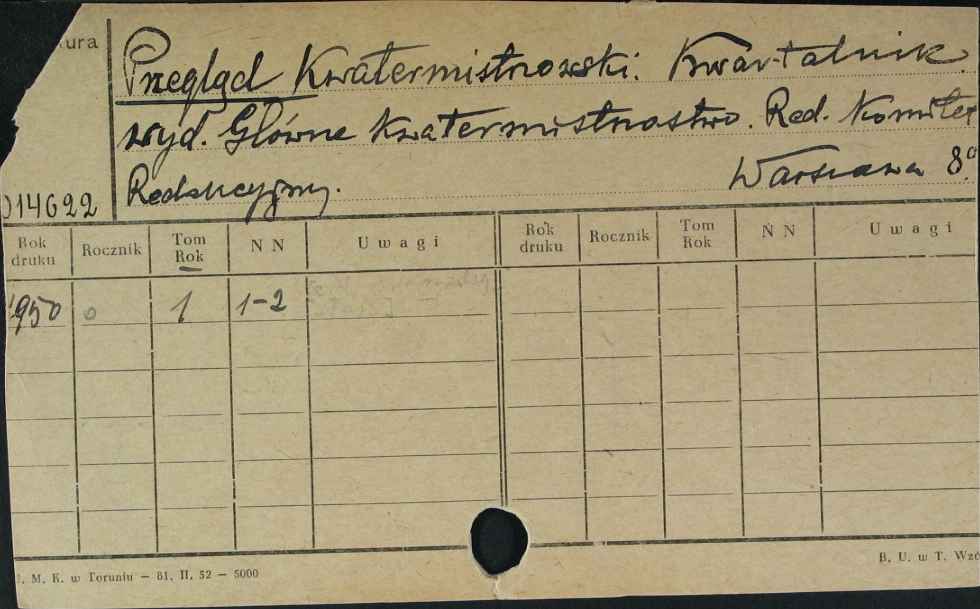 ura
Przegląd Kwatermistrzowski. Kwartalnik.
wyd. Główne Kwatermistrzostwo. Red. Komitet
Redakcyjny. Warszawa 8°.
014622
Rok druku Rocznik Tom Rok N N Uwagi Rok druku Rocznik Tom Rok N N Uwagi
1950 0 1 1-2
M. K. w Toruniu — 81. II. 52 — 5000
B. U. w T. Wzó